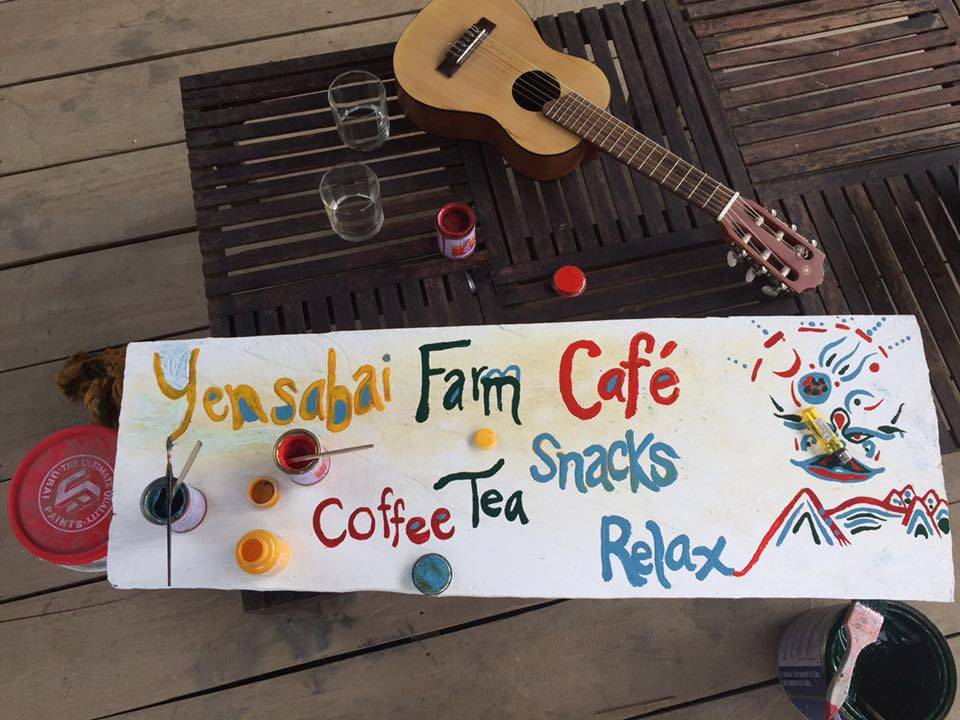 Yensabai Farm Café
Snacks
Coffee Tea
Relax
THE ULTIMATE QUALITY
PAINTS